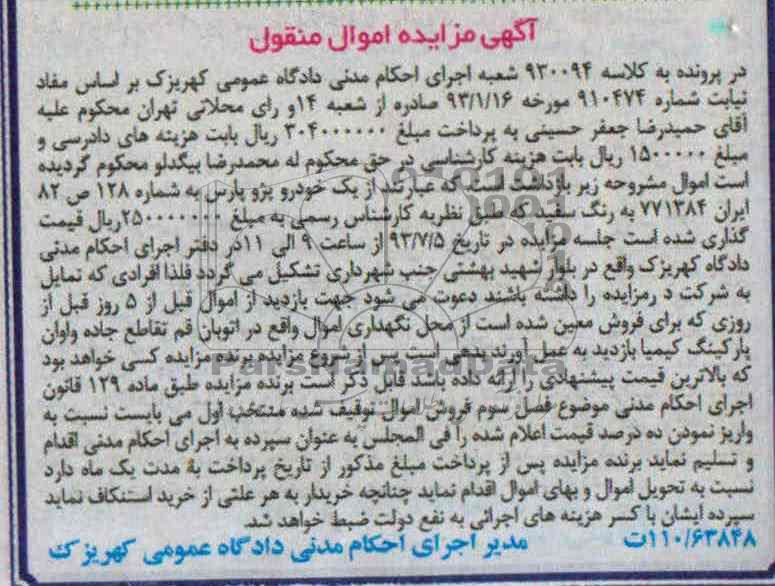 آگهی مزایده اموال منقول
در پرونده به کلاسه ۹۳۰۰۹۴ شعبه اجرای احکام مدنی دادگاه عمومی کهریزک بر اساس مفاد
نیابت شماره ۹۱۰۴۷۴ مورخه ۹۳/۱/۱۶ صادره از شعبه ۱۴و رای محلاتی تهران محکوم علیه
آقای حمیدرضا جعفر حسینی به پرداخت مبلغ ۳۰۴۰۰۰۰۰۰ ریال بابت هزینه های دادرسی و
مبلغ ۱۵۰۰۰۰۰ ریال بابت هزینه کارشناسی در حق محکوم له محمدرضا بیگدلو محکوم گردیده
است اموال مشروحه زیر بازداشت است. که عبارتند از یک خودرو پژو پارس به شماره ۱۲۸ ص ۸۲
ایران ۷۷۱۳۸۴ به رنگ سفید که طبق نظریه کارشناس رسمی به مبلغ ۲۵۰۰۰۰۰۰۰ریال قیمت
گذاری شده است جلسه مزایده در تاریخ ۹۳/۷/۵ از ساعت ۹ الی ۱۱در دفتر اجرای احکام مدنی
دادگاه کهریزک واقع در بلوار شهید بهشتی جنب شهرداری تشکیل می گردد فلذا افرادی که تمایل
به شرکت د رمزایده را داشته باشند دعوت می شود جهت بازدید از اموال قبل از ۵ روز قبل از
روزی که برای فروش معین شده است از محل نگهداری اموال واقع در اتوبان قم تقاطع جاده واوان
پارکینگ کیمیا بازدید به عمل آورند بدهی است پس از شروع مزایده برنده مزایده کسی خواهد بود
که بالاترین قیمت پیشنهادی را ارائه داده باشد قابل ذکر است برنده مزایده طبق ماده ۱۲۹ قانون
اجرای احکام مدنی موضوع فصل سوم فروش اموال توقیف شده منتخب اول می بایست نسبت به
واریز نمودن ده درصد قیمت اعلام شده را فی المجلس به عنوان سپرده به اجرای احکام مدنی اقدام
و تسلیم نماید برنده مزایده پس از پرداخت مبلغ مذکور از تاریخ پرداخت به مدت یک ماه دارد
نسبت به تحویل اموال و بهای اموال اقدام نماید چنانچه خریدار به هر علتی از خرید استنکاف نماید
سپرده ایشان با کسر هزینه های اجرائی به نفع دولت ضبط خواهد شد.
۱۱۰/۶۳۸۴۸ت مدیر اجرای احکام مدنی دادگاه عمومی کهریزک
ParsNamadData